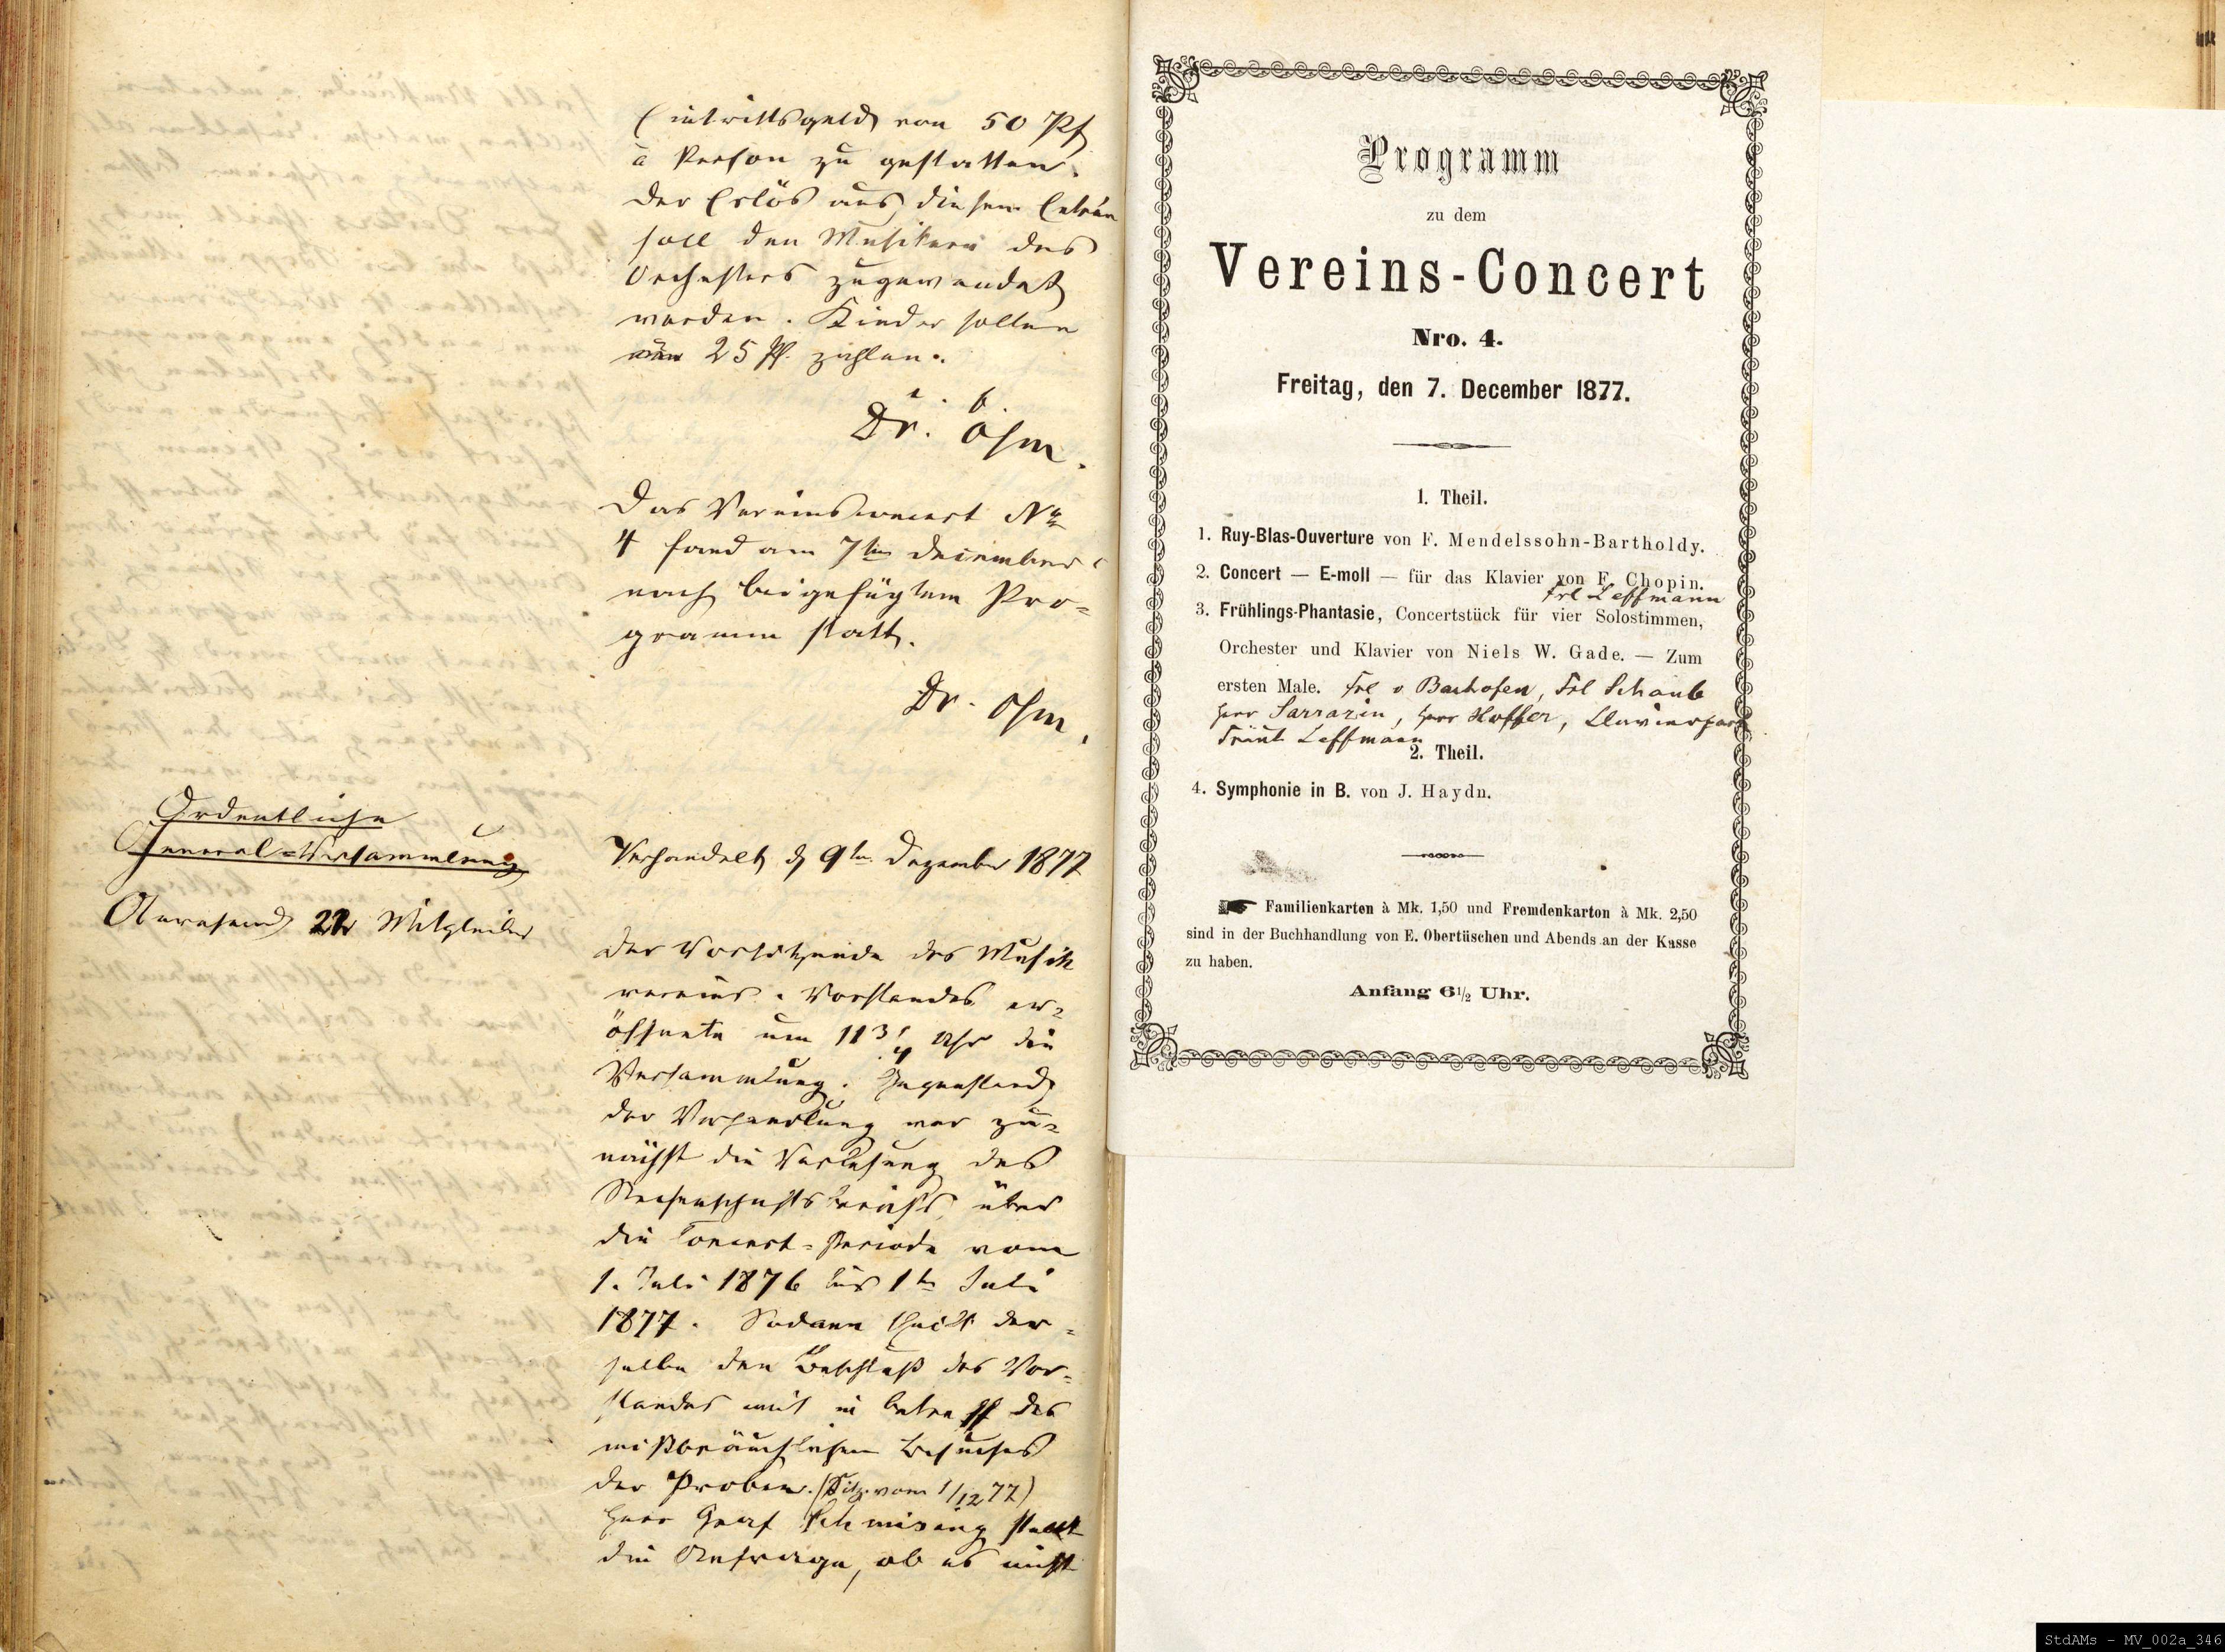 Eintrittsgeld von 50 Pf
à Person zu gestatten.
Der Erlös aus diesem Entrée
soll den Musikern des
Orchesters zugewendet
werden. Kinder sollen
nur 25 Pf. zahlen.
Dr. Ohm.
Das Vereinsconcert No
4 fand am 7ten December
nach beigefügtem Pro=
gramm statt.
Dr. Ohm.
Ordentliche
General=Versammlung
Anwesend 22 Mitglieder
Verhandelt d 9ten Dezember 1877
Der Vorsitzende des Musik
vereins-Vorstandes er=
öffnete um 11 3/4 Uhr die
Versammlung. Gegenstand
der Verhandlung war zu=
nächst die Verlesung des
Rechenschaftsberichts über
die Concert=Periode vom
1. Juli 1876 bis 1ten Juli
1877. Sodann theilt der=
selbe den Beschluß des Vor=
standes mit in betreff des
mißbräuchlichen Besuches
der Proben. (Sitz. vom 1/12 77)
Herr Graf Schmising stellt
die Anfrage, ob es nicht
Programm
zu dem
Vereins-Concert
Nro. 4.
Freitag, den 7. December 1877.
1. Theil.
1. Ruy-Blas-Ouverture von F. Mendelssohn-Bartholdy.
2. Concert — E-moll — für das Klavier von F. Chopin.
Frl Leffmann
3. Frühlings-Phantasie, Concertstück für vier Solostimmen,
Orchester und Klavier von Niels W. Gade. — Zum
ersten Male. Frl v. Bachofen, Frl Schaub
Herr Sarrazin, Herr Hoffer, Clavierpart
Fräul. Leffmann
2. Theil.
4. Symphonie in B. von J. Haydn.
☛ Familienkarten à Mk. 1,50 und Fremdenkarton à Mk. 2,50
sind in der Buchhandlung von E. Obertüschen und Abends an der Kasse
zu haben.
Anfang 6½ Uhr.
StdAMs - MV_002a_346